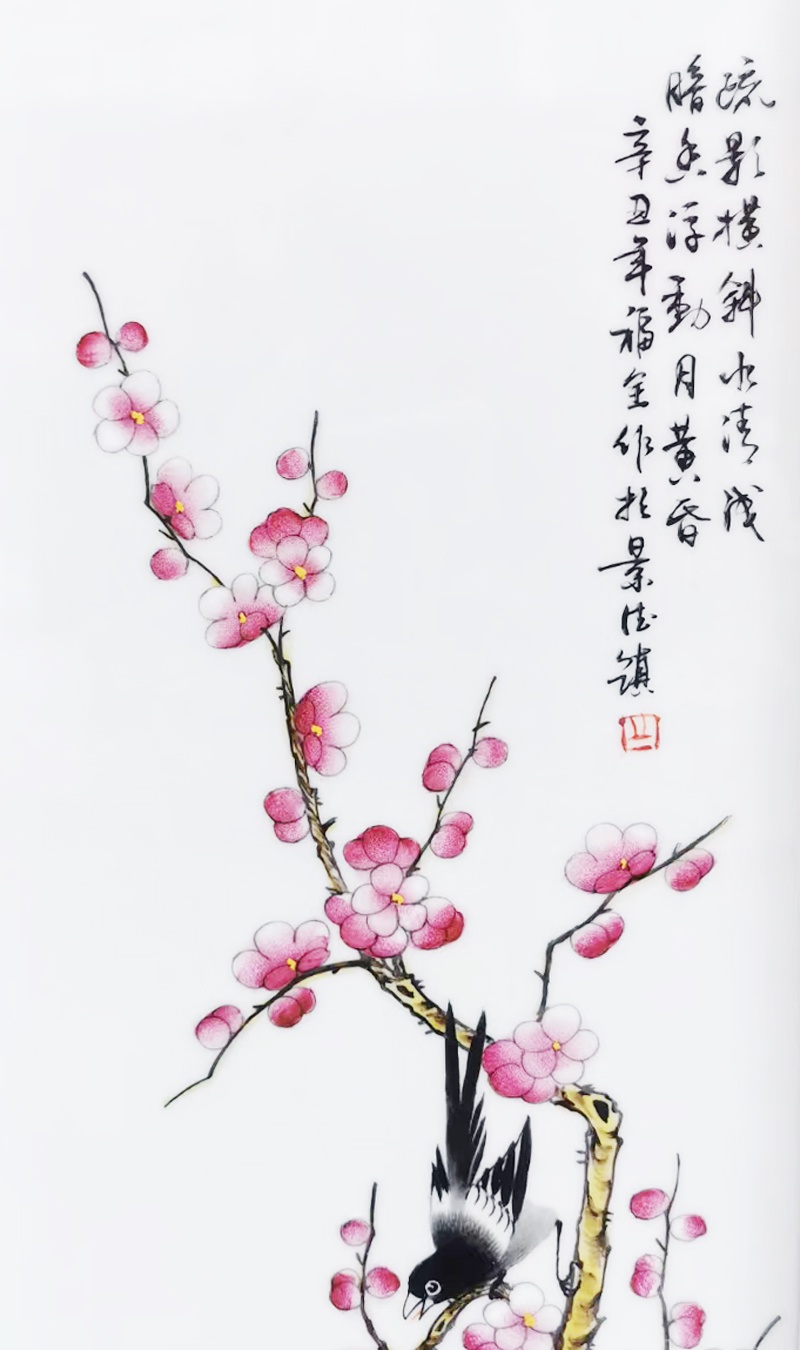 疏影横斜水清浅
暗香浮動月黄昏
辛丑年福全作於景德鎮